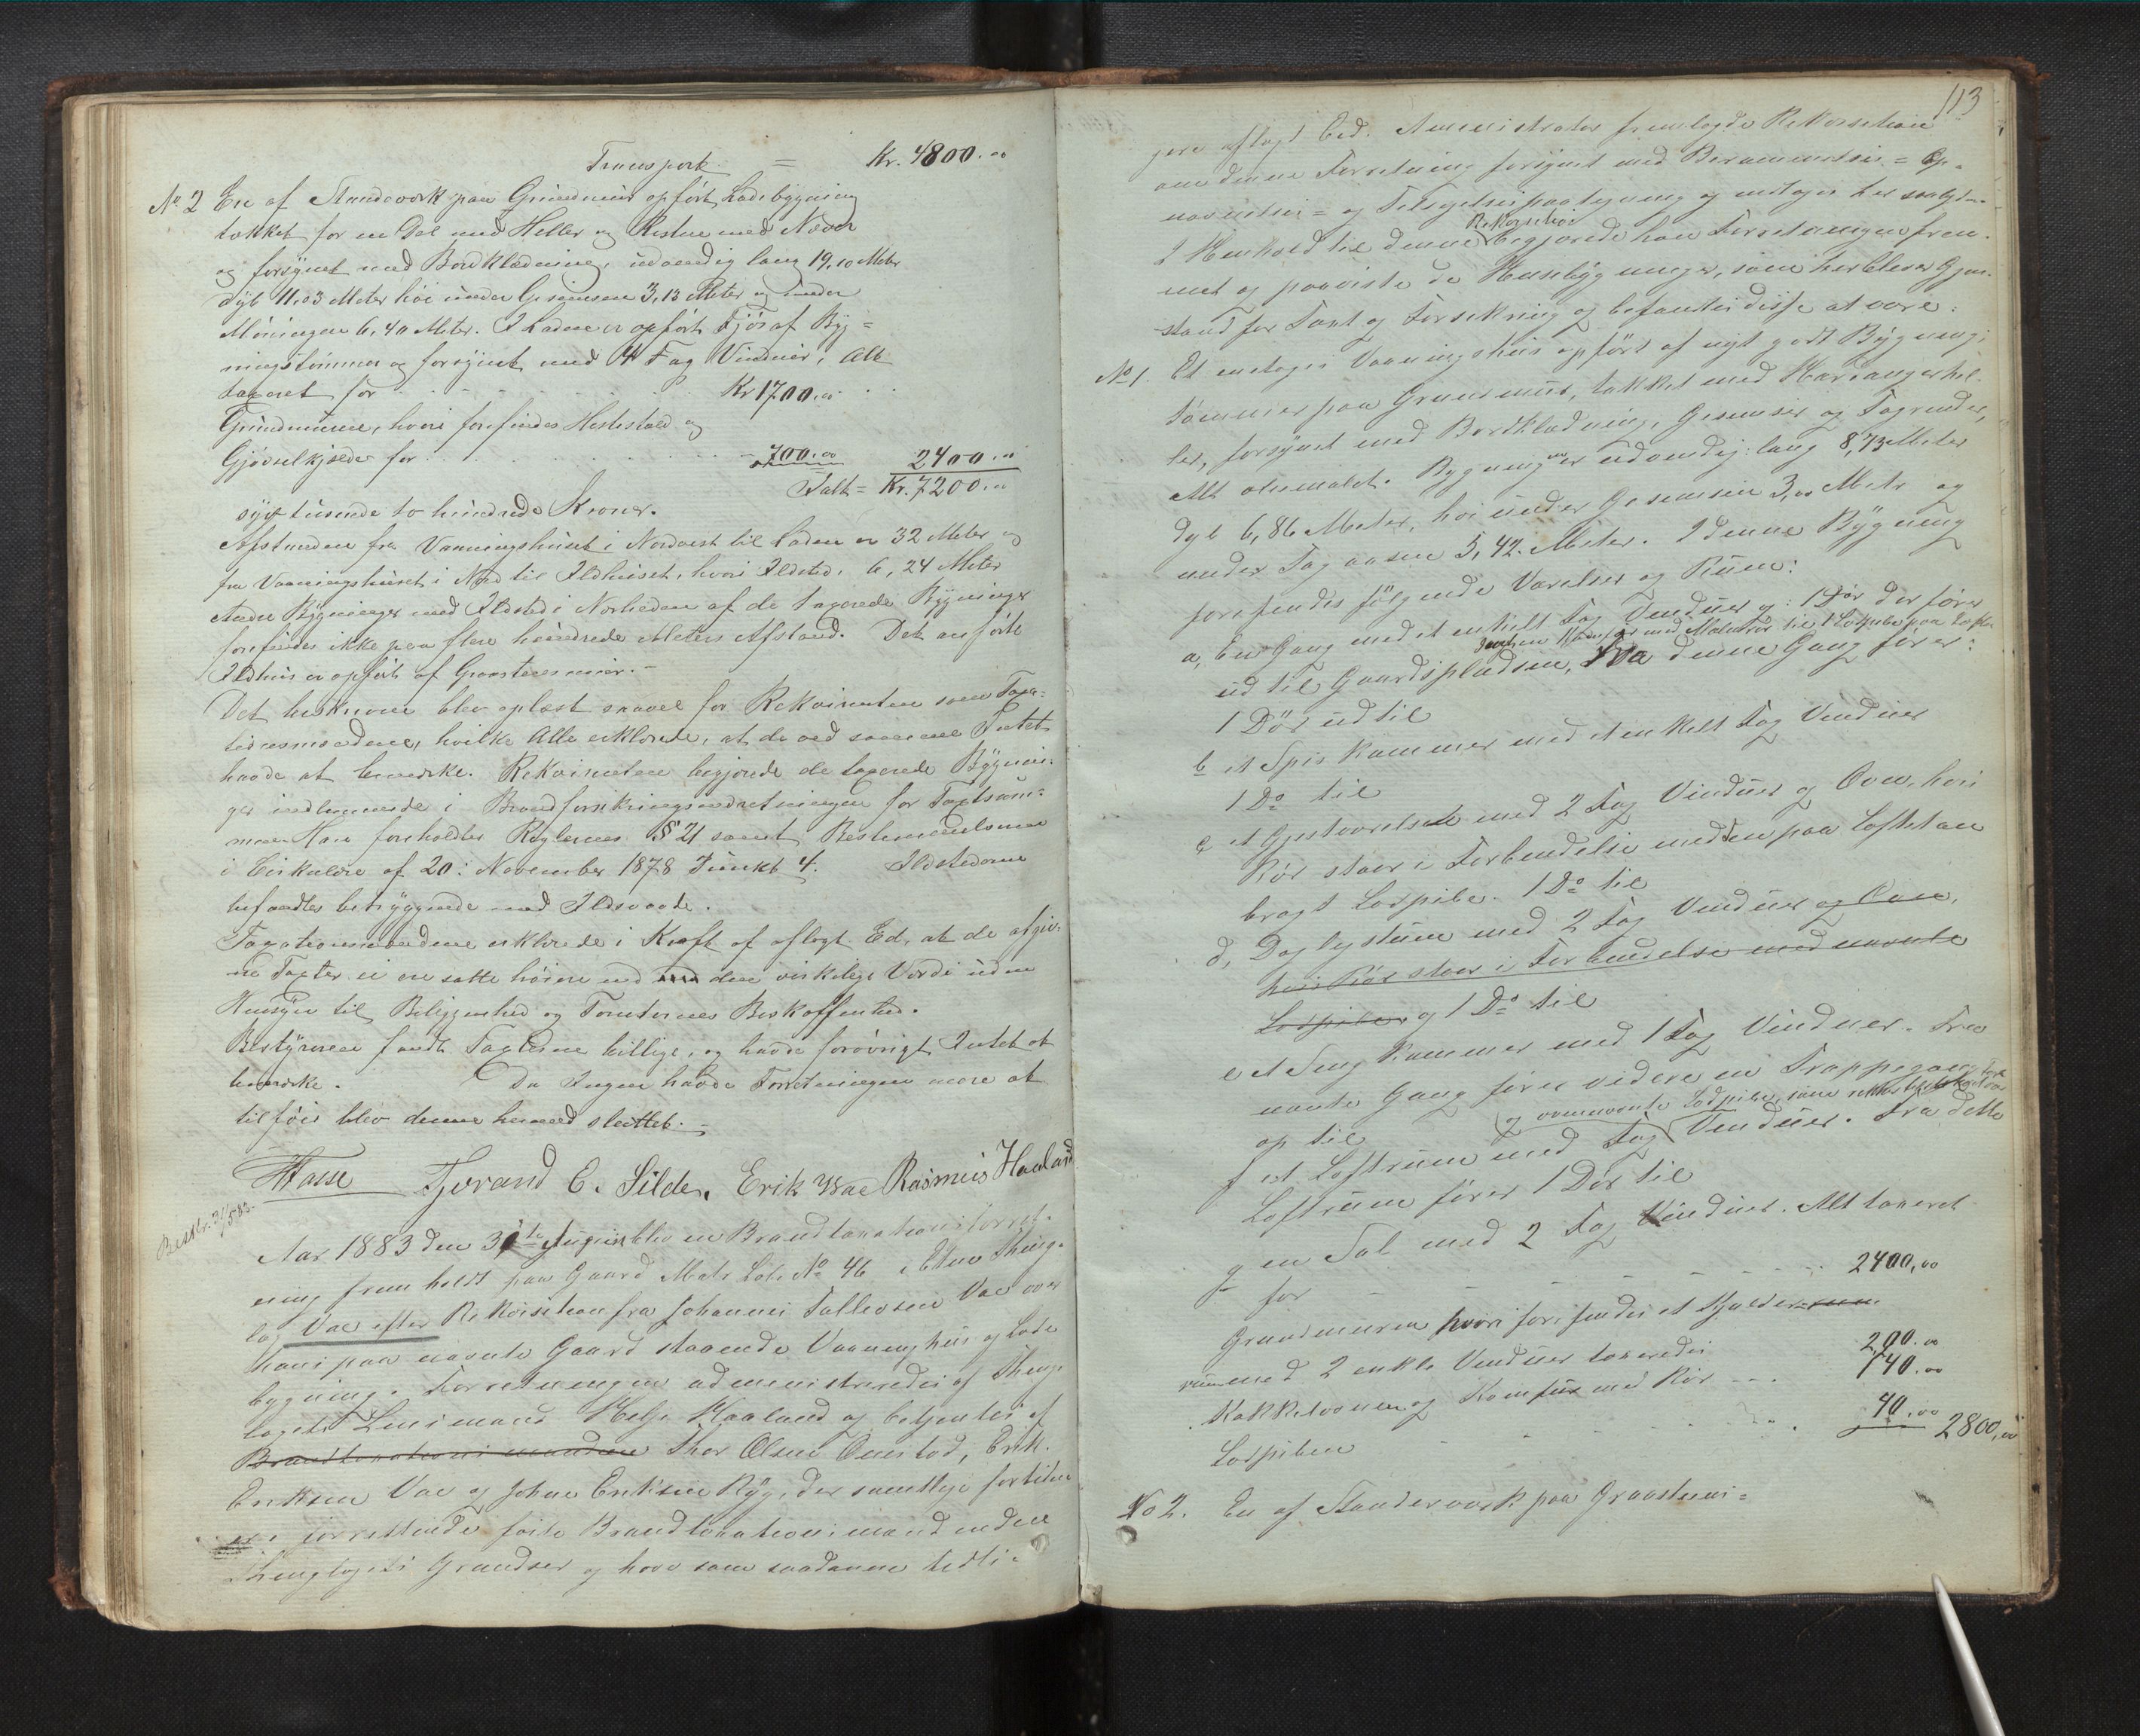 Transport = Kr. 4800.00
No 2 En af Standværk paa Grundmuur opført Ladebygning
tækket for en Del med Heller og Resten med Næver
og forsynet med Bordklædning, udvendig lang 19,10 Meter
dyb 11,03 Meter høi under Gesimsen 3,13 Meter og under
Møningen 6,40 Meter. I Laden er opført Fjøs af Byg=
ningstømmer og forsynet med 4 Fag Vinduer, Alt
taxeret for Kr 1700.00
Grundmuren, hvori forefindes Hestestald og
Gjødselkjelder for 700.00 2400.00
Ialt = Kr. 7200.00
syv tusende to hundrede Kroner.
Afstanden fra Vaaningshuset i Nordvest til Laden er 32 Meter og
fra Vaaningshuset i Nord til Ildhuset, hvori Ildsted, 6,24 Meter
Andre Bygninger med Ildsted i Nærheden af de taxerede Bygninger
forefindes ikke paa flere hundrede Meters Afstand. Det anførte
Ildhus er opført af Graastensmuur.-
Det beskrevne blev oplæst saavel for Rekvirenten som Taxa=
tionsmændene, hvilke Alle erklærede, at de ved samme Intet
havde at bemærke. Rekvirenten begjærede de taxerede Bygnin-
ger indlemmede i Brandforsikringsindretningen for Taxtsum-
men. Han foreholdtes Reglernes § 21 samt Bestemmelserne
i Cirkulære af 20: November 1878 Punkt 4. Ildstederne
befandtes betryggende mod Ildsvaade.
Taxationsmændene erklærede i Kraft af aflagt Ed, at de afgiv-
ne Taxter ei ere satte høiere end den virkelige Værdi uden
Hensyn til Beliggenhed og Tomternes Beskaffenhed.
Bestyreren fandt Taxterne billige, og havde forøvrigt Intet at
bemærke. Da Ingen havde Forretningen mere at
tilføie blev denne hermed sluttet.-
Hasse Tjerand E. Silde. Erik Vae Rasmus Haaland
Aar 1883 den 31te August blev en Brandtaxationsforret-
ning fremholdt paa Gaard Matr Løb No 46 i Etne Thing-
lag Vae efter Rekvisition fra Johannes Tallevsen Vae over
hans paa nævnte Gaard staaende Vaaninghus og Lade
bygning. Forretningen administreredes af Thing-
lagets Lensmand Helje Haaland og betjentes af
Brandtaxationsmændene Thor Olsen Ænstad, Erik
Eriksen Vae og Johan Eriksen Ryg, der samtlige fortiden
ere forrettende faste Brandtaxationsmænd inden
Thinglagets Grændser og have som saadanne tidli-
113
gere aflagt Ed. Administrator fremlagde Rekvisition
om denne Forretning forsynet med Berammelses= Op-
nævnelses= og Tilsigelsespaategning og indtages her saalydende
I Henhold til denne Rekvisition begjærede han Forretningen frem-
met og paaviste de Husebygninger, som her blever Gjen-
stand for Taxt og Forsikring og befantes disse at være:
No 1. Et enetages Vaaningshus opført af nyt godt Bygnings
tømmer paa Grundmur, tækket med Hardangerhel-
ler, forsynet med Bordklædning, Gesimser og Tagrender,
Alt oliemalet. Bygningen er udvendig: lang 8,73 Meter
dyb 6,86 Meter, høi under Gesimsen 3,00 Meter og
under Tagaasen 5,42 Meter. I denne Bygning
forefindes følgende Værelser og Rum:
a, En Gang med et enkelt Fag Vinduer og 1 Dør der fører
samt en Komfur med Malmrør til Lodpibe paa Loftet
ud til Gaardspladsen, Fra denne Gang fører:
1 Dør ud til
b et Spiskammer med et enkelt Fag Vinduer
1 Do til
c et Gjestværelse med 2 Fag Vinduer og Ovn, hvis
Rør staar i Forbindelse med den paa Loftet an
bragt Lodpibe. 1 Do til
d, Daglystuen med 2 Fag Vinduer og Ovn,
hvis Rør staar i Forbindelse med nævnte
Lodpibe, og 1 Do til
e et Sengkammer med 1 Fag Vinduer. Fra
nævnte Gang fører videre en Trappegang
og ovennævnte Lodpibe, som
op til
f et Loftrum med Fag Vinduer. Fra dette
Loftrum fører 1 Dør til
g en Sal med 2 Fag Vinduer. Alt taxeret
for 2400,00
Grundmuren hvori forefindes et Kjelder-rum
rum med 2 enkle Vinduer taxeredes 200.00
Kakkelovnen og Komfur med Rør 140.00
Lodpiben 40.00 2800,00
No 2. En af Standerværk paa Graastens=